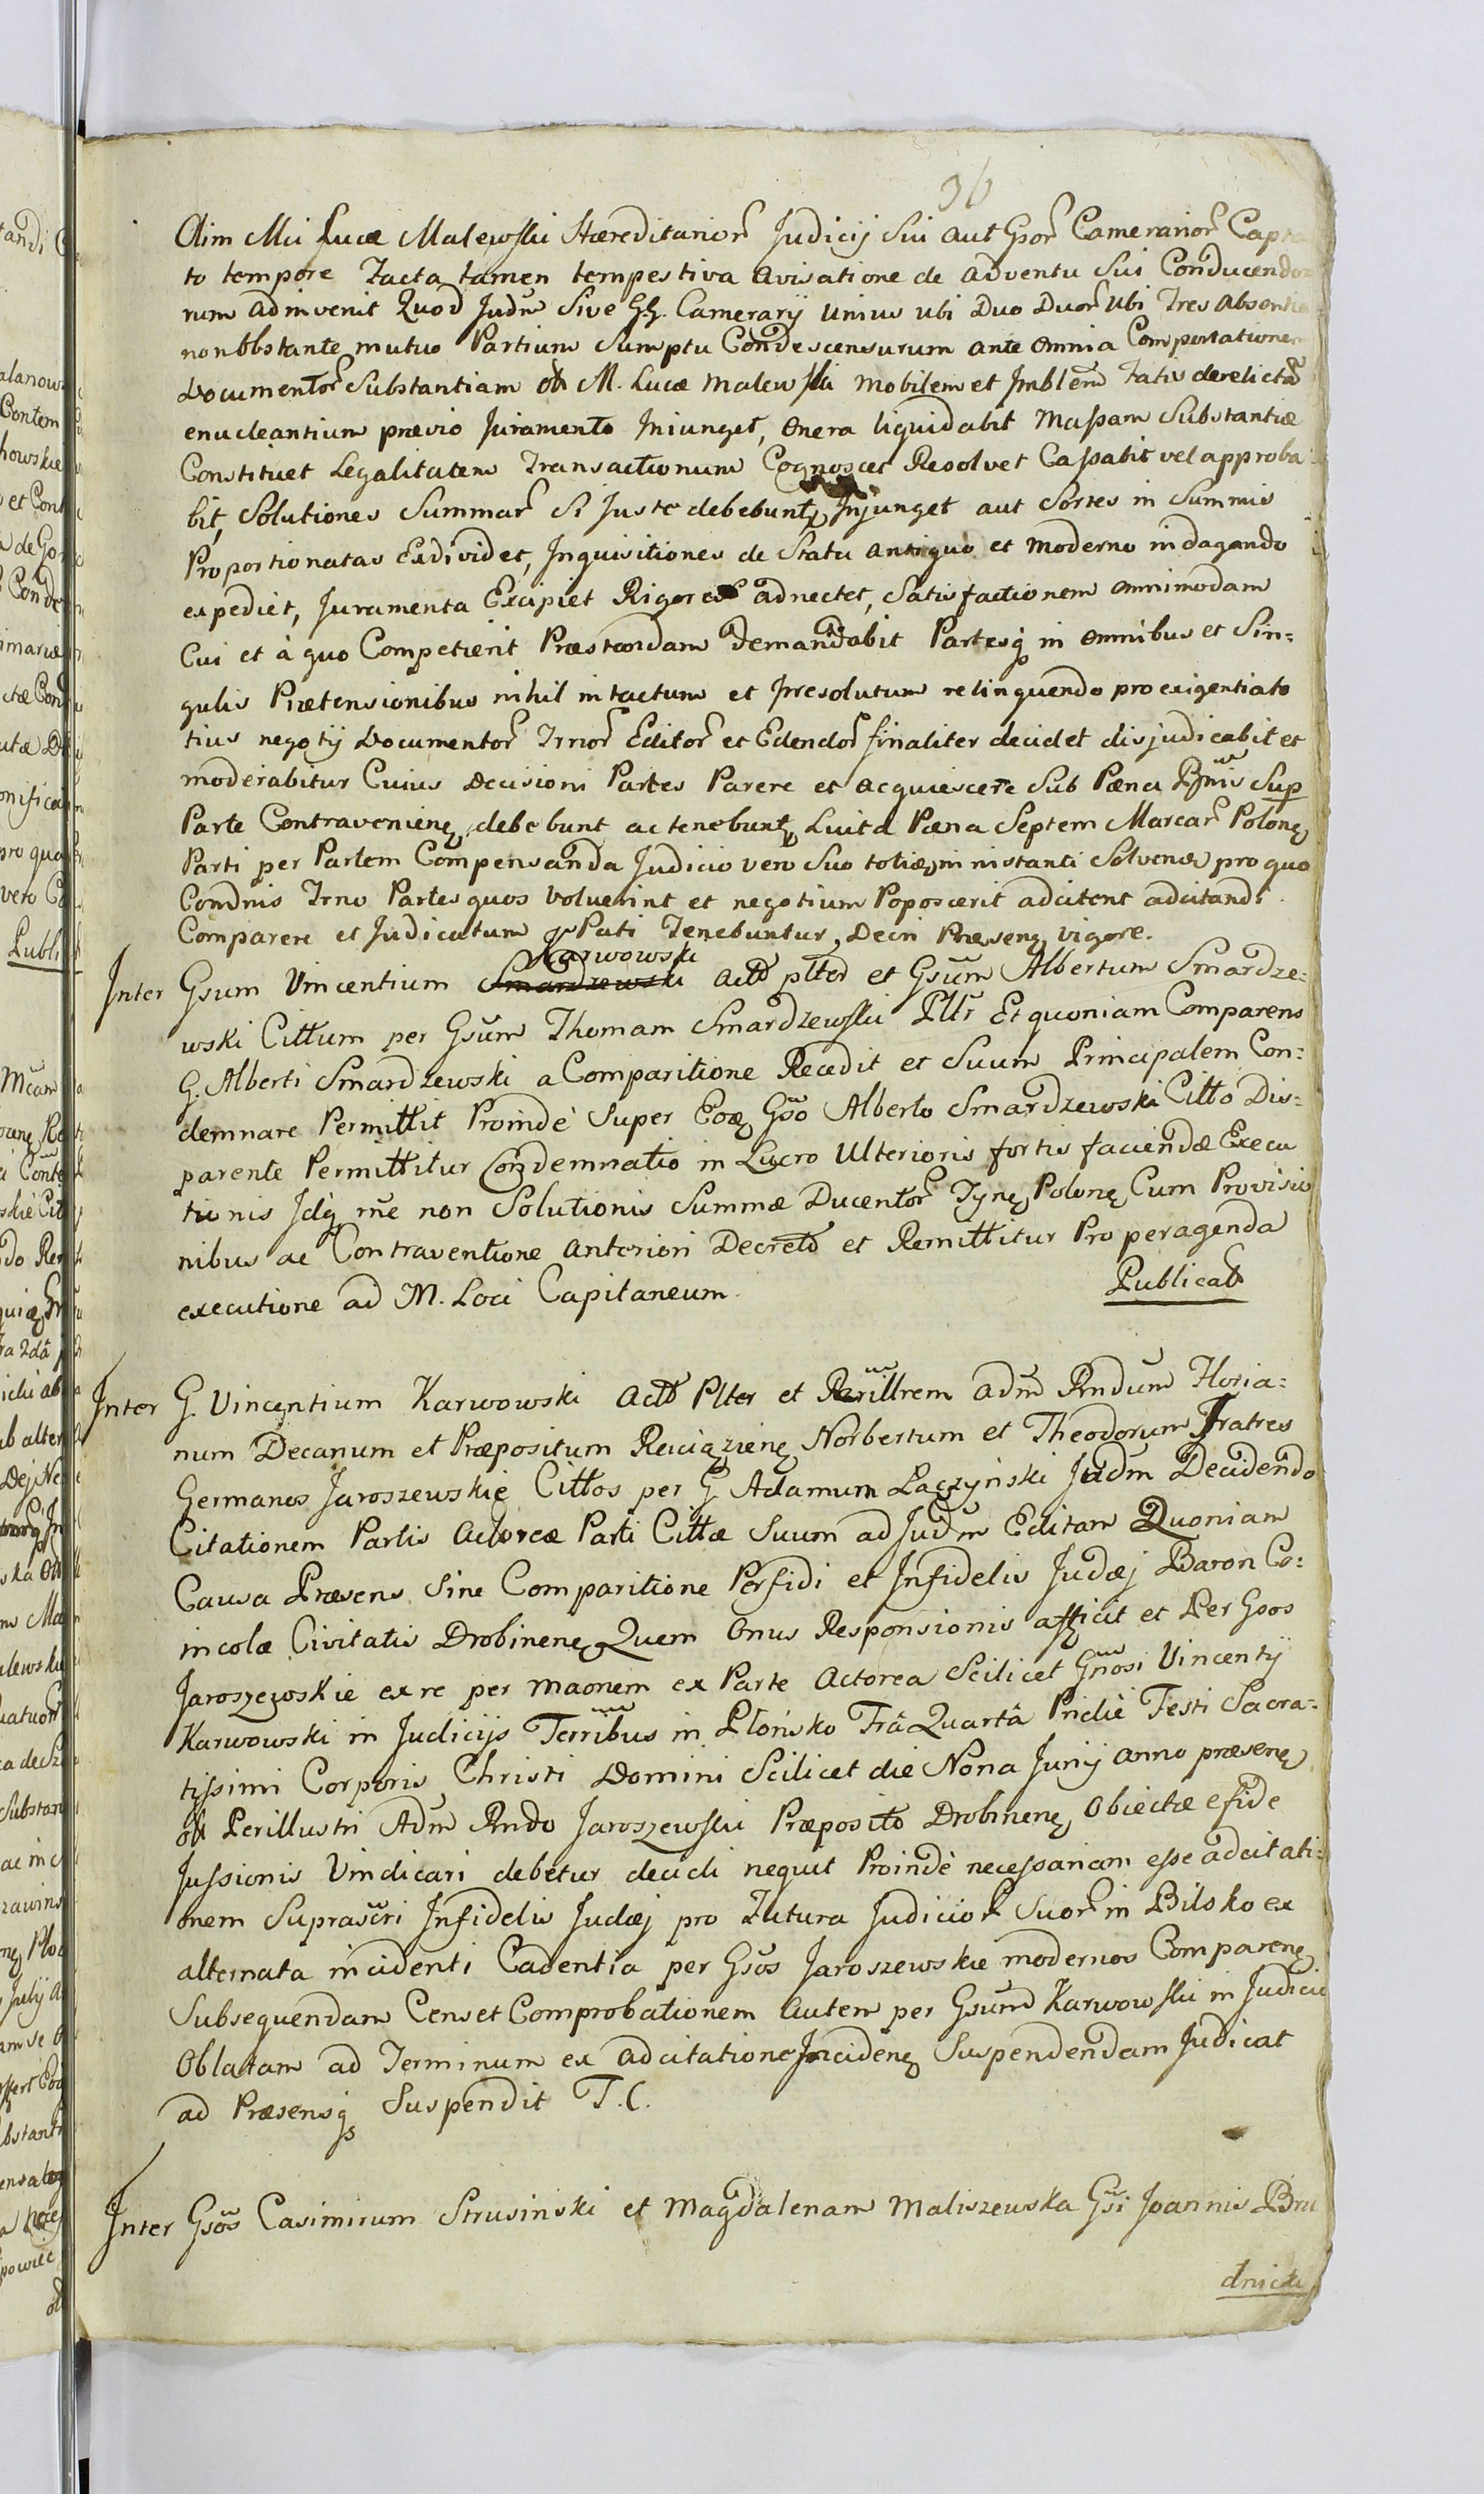 36
Olim Mci Lucæ Malewski Hæreditarior Judicij Sui aut Gsor Camerarior Capta
to tempore Facta tamen tempestiva avisatione de adventu Sui Conducendor
rum adinvenit Quod Judm Sive G.G. Camerarij Unius ubi Duo Duor Ubi Tres absentia
non Obstante mutuo Partium Sumptu Condescensurum ante omnia Comportationem
Documentor Substantiam M. Lucæ Malewski mobilem et Imblem Fatis derelictã
enucleantium prævio Juramento Injunget, Onera liquidabit Massam Substantiæ
Constituet Legalitatem Transactionum Cognoscet Resolvet Cassabit vel approba
bit, Solutiones Summar Si Juste debebuntz Injunget aut Sortes in Summis
Proportionatas Exdividet, Inquisitiones de Statu antiquo et moderno indagando
expediet, Juramenta Excipiet Rigores adnectet, Satisfactionem omnimodam
Cui et à quo Competierit Præstandam Demandabit Partesq in Omnibus et Sin=
gulis Prætensionibus nihil intactum et Irresolutum relinquendo pro exigentia to
tius negotij Documentor Trnor Editor et Edendor finaliter decidet disjudicabit et
moderabitur Cuius Decisioni Partes Parere et acquiescere Sub Pæna Bnnis Sup
Parte Contravenienz debebunt ac tenebuntz Luita Pæna Septem Marcar Polonz
Parti per Partem Compensanda Judicio vero Suo totiæz in instanti Solvenda pro quo
Condnis Trno Partes quos voluerint et negotium Poposcerit adcitent adcitandi
Comparere et Judicatum Pati Tenebuntur, Decri Præsenz vigore.
Karwowski
Inter Gsum Vincentium Smardzewski actõ pltrõ et Gsum Albertum Smardze=
wski Cittum per Gsum Thomam Smardzewski Pltr Et quoniam Comparens
G. Alberti Smardzewski a Comparitione Recedit et Suum Principalem Con=
demnare Permittit Proindè Super Eoz Gso Alberto Smardzewski Citto Dis=
parente Permittitur Condemnatio in Lucro Ulterioris fortis faciendæ Execu
tionis Idq rne non Solutionis Summæ Ducentor Tynz Polonz Cum Provisio
nibus ac Contraventione Anteriori Decreto et Remittitur Pro peragenda
executione ad M. Loci Capitaneum.
Publicat
Inter G. Vincentium Karwowski actõ Plter et Perillrem adm Rndum Floria=
num Decanum et Præpositum Reciązienz Norbertum et Theodorum Fratres
Germanos Jaroszewskie Cittos per G Adamum Łączyński Judm Decidendo
Citationem Partis Actoreæ Parti Cittæ Suum ad Judm Editam Quoniam
Causa Præsens Sine Comparitione Perfidi et Infidelis Judæj Baron Co=
incolæ Civitatis Drobinenz Quem Onus Responsionis afficit et Per Gsos
Jaroszewskie ex re per maonem ex Parte Actorea Scilicet Gnosi Vincentij
Karwowski in Judicijs Terribus in Płońsko Frâ Quartâ Pridiè Festi Sacra=
tissimi Corporis Christi Domini Scilicet die Nona Junij anno præsenz
Perillustri Adm Rndo Jaroszewski Præposito Drobinenz Obiectæ efide
Jussionis Vindicari debetur decidi nequit Proindè necessariam esse adcitati=
onem Suprascri Infidelis Judæj pro Futura Judicior Suor in Bilsko ex
alternata incidenti Cadentia per Gsos Jaroszewskie modernos Comparenz
Subsequendam Censet Comprobationem autem per Gsum Karwowski in Judicio
Oblatam ad Terminum ex adcitatione Incidenz Suspendendam Judicat
ad Præsensq Suspendit T.C.
Inter Gsos Casimirum Strusinski et Magdalenam Maliszewska Gsi Joannis Bru
dnicki